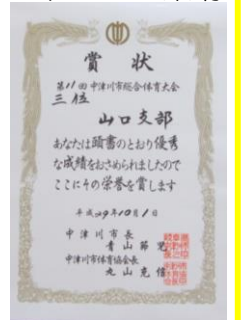 賞状
第11回中津川市総合体育大会
三位
山口支部
あなたは頭書のとおり優秀
な成績をおさめられましたので
ここにその栄誉を賞します
平成29年10月1日
中津川市長
青山節児
中津川市体育協会長
丸山克信